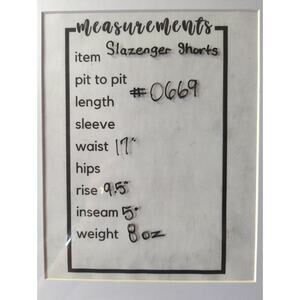 measurements
item Slazenger Shorts
pit to pit
#0669
length
sleeve
waist 17"
hips
rise 9.5"
inseam 5"
weight 8 oz